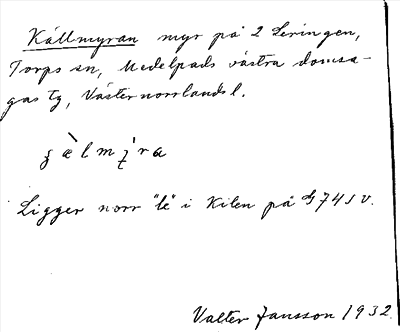 Källmyran myr på 2 Leringen,
Torps sn, Medelpads västra domsa-
gas tg, Västernorrlands l.
Ligger norr "le" i Kilen på 74 S V.
Valter Jansson 1932.